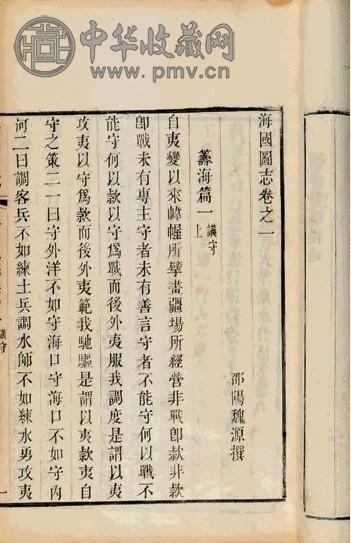 中华收藏网
www.pmv.cn
海國圖志卷之一
邵陽魏源撰
籌海篇一 議守上
自夷變以來幃幄所擘畫疆場所經營非戰卽款非款
卽戰未有專主守者未有善言守者不能守何以戰不
能守何以款以守爲戰而後外夷服我調度是謂以夷
攻夷以守爲款而後外夷範我馳驅是謂以夷款夷自
守之策二一曰守外洋不如守海口守海口不如守內
河二曰調客兵不如練土兵調水師不如練水勇攻夷
議守
一